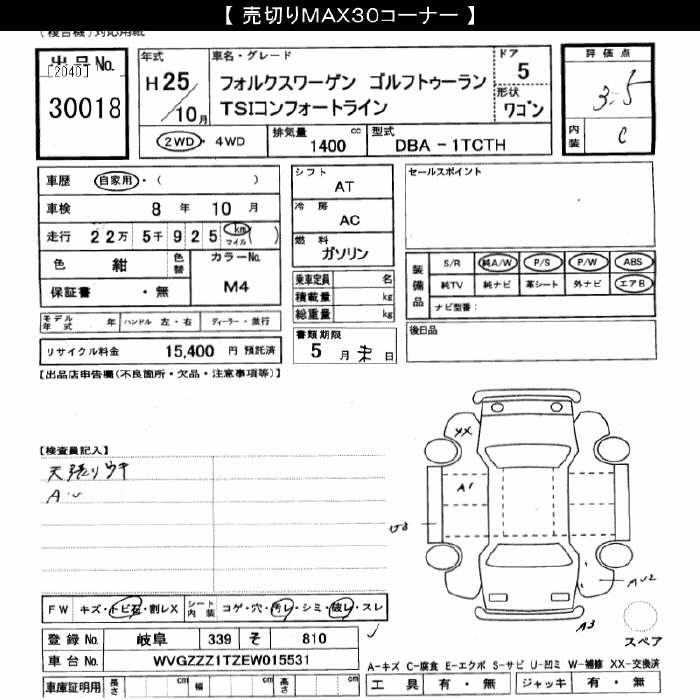 【 売切りMAX30コーナー 】
(複合機)対応用紙
出品No.
[2040]
30018
年式
H25
10月
車名・グレード
フォルクスワーゲン ゴルフトゥーラン
TSIコンフォートライン
ドア
5
形状
ワゴン
評価点
3.5
内装
C
2WD・4WD
排気量
1400 cc
型式
DBA - 1TCTH
車歴 自家用・( )
車検 8 年 10 月
走行 22万 5千 925 km マイル ( )
色 紺 色替
カラーNo.
M4
保証書 ・ 無
シフト
AT
冷房
AC
燃料
ガソリン
乗車定員 名
積載量 kg
総重量 kg
セールスポイント
装備品
S/R 純A/W P/S P/W ABS
純TV 純ナビ 革シート 外ナビ エアB
ナビ型番:
モデル年式 年 ハンドル 左・右 ディーラー・並行
リサイクル料金 15,400 円 預託済
書類期限
5 月 末 日
後日品
【出品店申告欄(不良箇所・欠品・注意事項等)】
【検査員記入】
天張りウキ
XX
A1
U3
AU2
A3
スペア
FW キズ・トビ石・割レX シート内装 コゲ・穴・汚レ・シミ・破レ・スレ
登録No. 岐阜 339 そ 810
車台No. WVGZZZ1TZEW015531
A-キズ C-腐食 E-エクボ S-サビ U-凹ミ W-補修 XX-交換済
車庫証明用 長さ cm 幅 cm 高さ cm
工具 有・無 ジャッキ 有・無